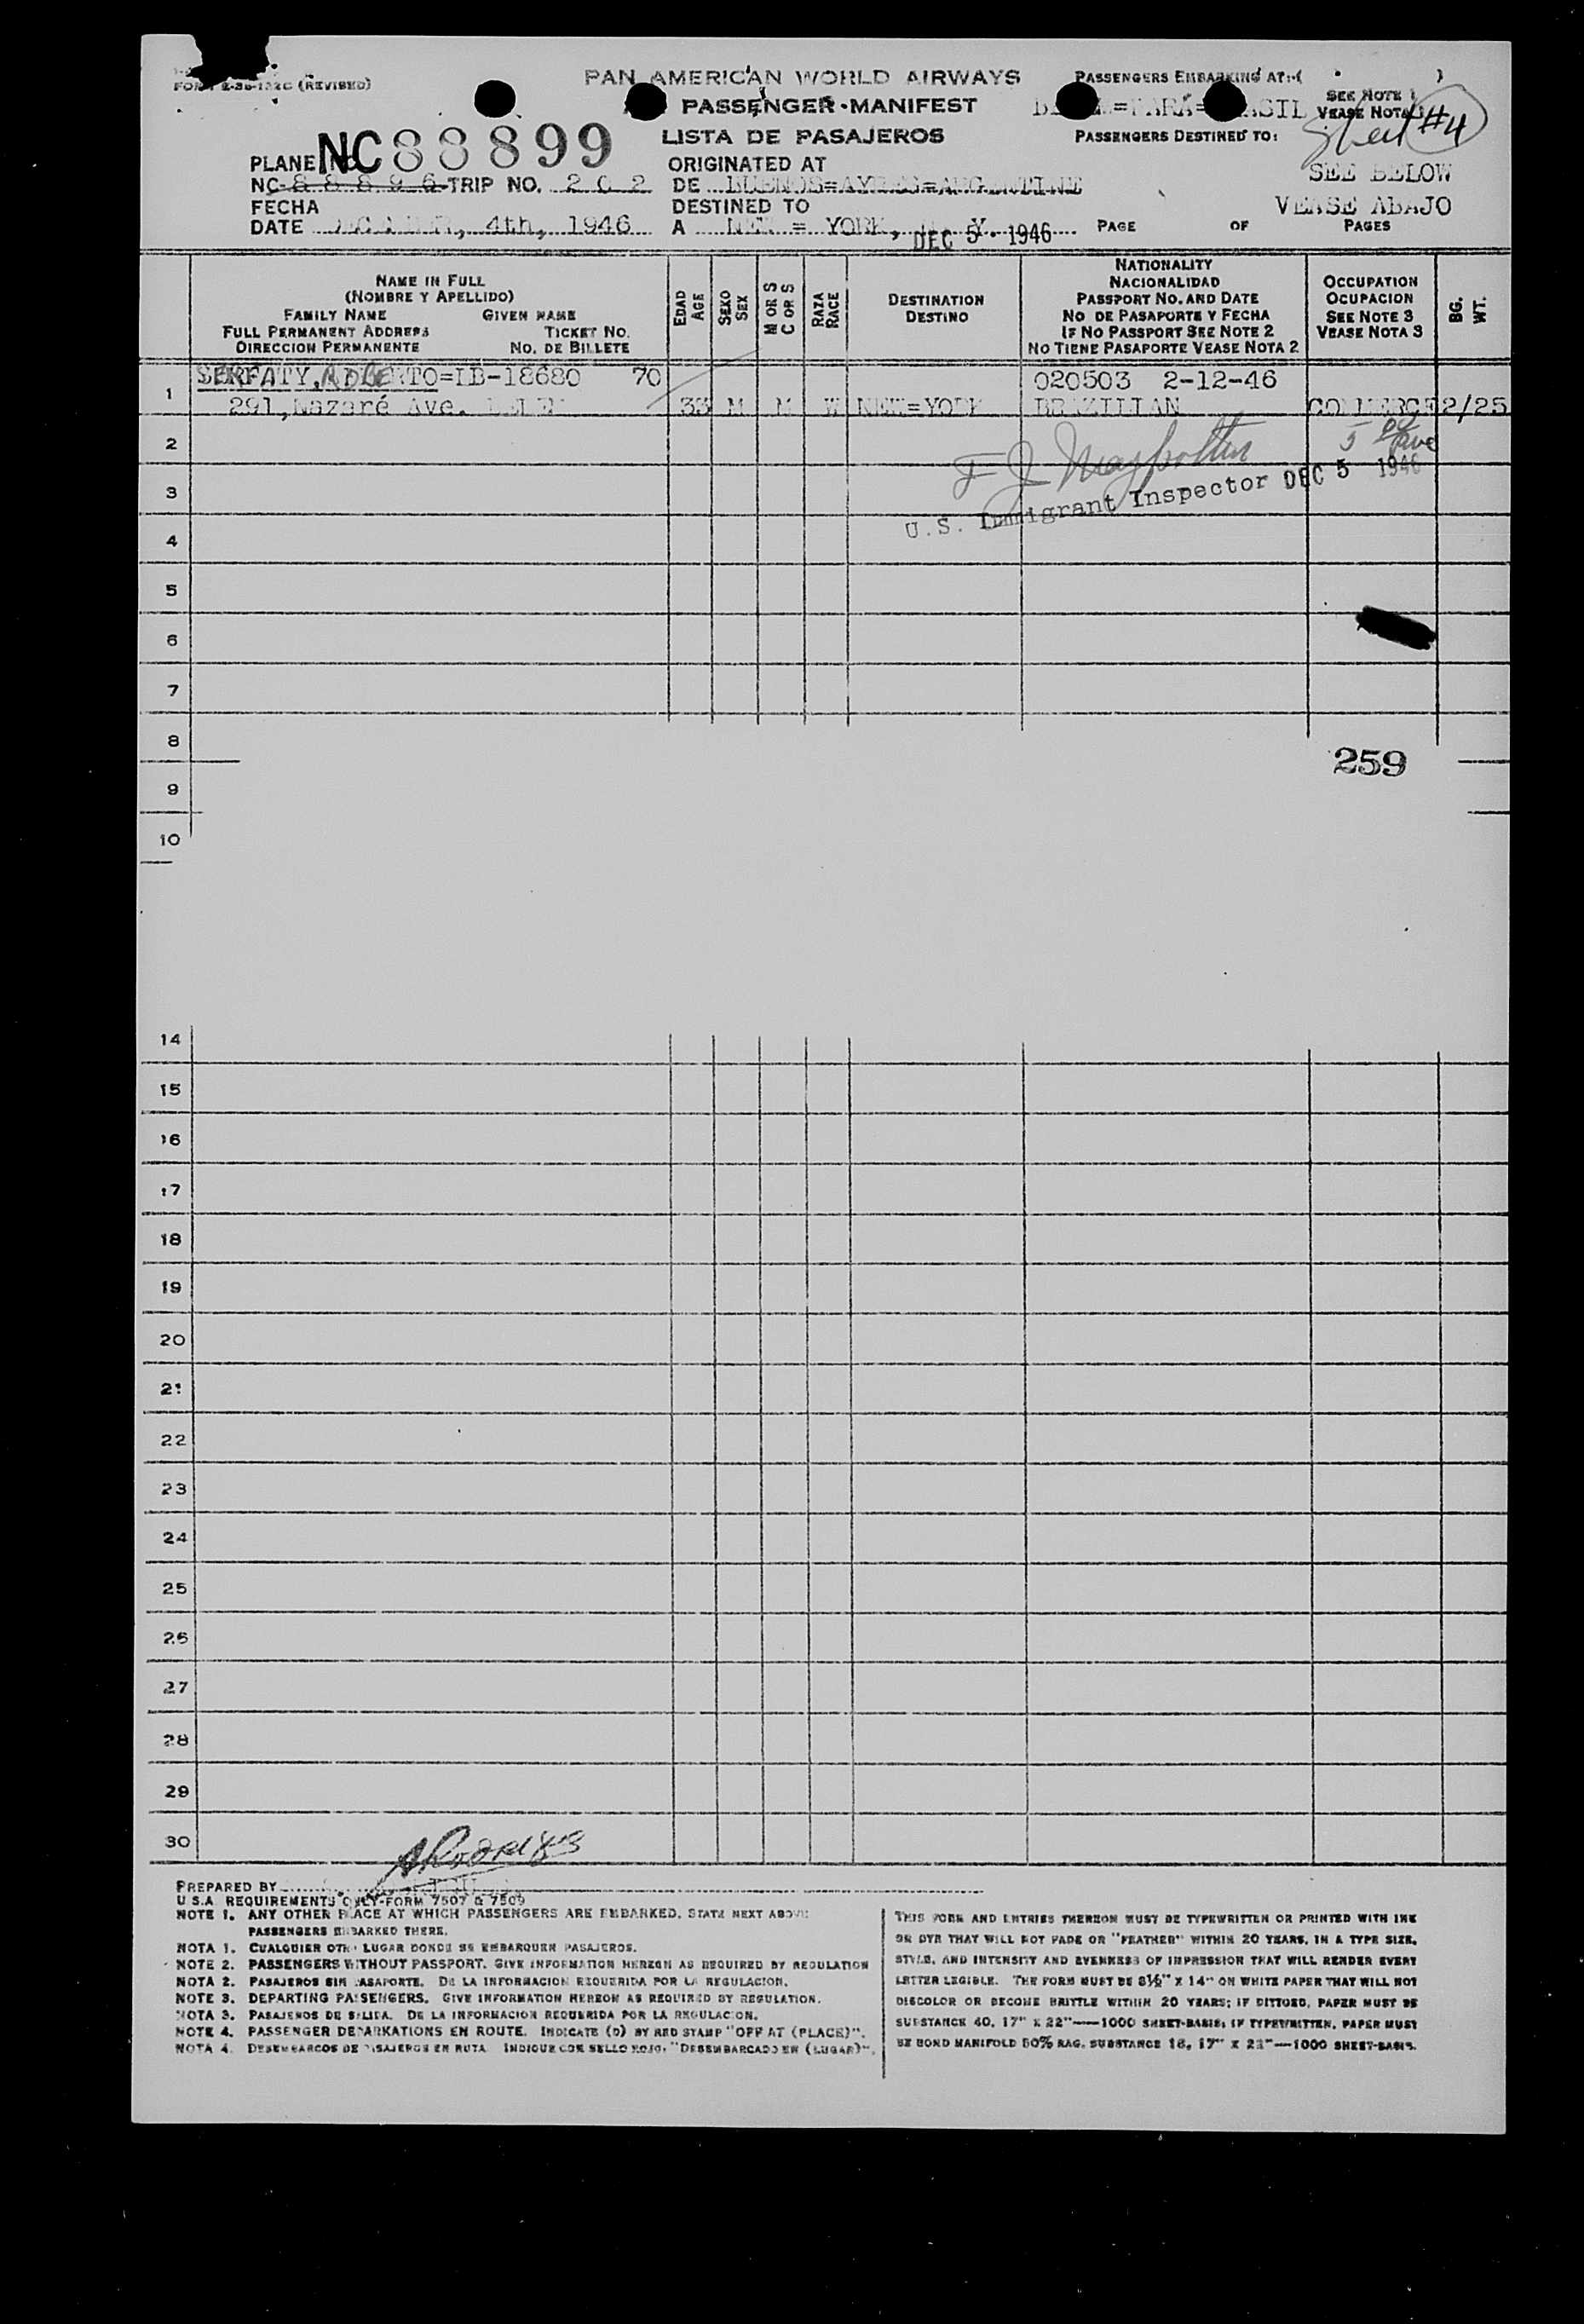 FORM (REVISED)
PAN AMERICAN WORLD AIRWAYS
PASSENGERS EMBARKING AT:-( )
PASSENGER-MANIFEST
SEE NOTE 1
VEASE NOTA 1
LISTA DE PASAJEROS
PASSENGERS DESTINED TO:
Sheet #4
PLANE NC 88899
ORIGINATED AT
NC-88896 TRIP NO. 202
DE BUENOS=AYRES=ARGENTINE
SEE BELOW
FECHA
DESTINED TO
VEASE ABAJO
DATE 4th, 1946
A NEW = YORK, Y. DEC 5 1946
PAGE OF PAGES
NAME IN FULL
(NOMBRE Y APELLIDO)
FAMILY NAME GIVEN NAME
FULL PERMANENT ADDRESS TICKET NO.
DIRECCION PERMANENTE NO. DE BILLETE
EDAD AGE
SEXO SEX
M OR S C OR S
RAZA RACE
DESTINATION
DESTINO
NATIONALITY
NACIONALIDAD
PASSPORT NO. AND DATE
NO DE PASAPORTE Y FECHA
IF NO PASSPORT SEE NOTE 2
NO TIENE PASAPORTE VEASE NOTA 2
OCCUPATION
OCUPACION
SEE NOTE 3
VEASE NOTA 3
BG. WT.
SERFATY, =IB-18680 70 020503 2-12-46
1 291,Nazaré Ave. BELEM 33 M M W NEW=YORK BRAZILIAN COMMERCE 2/25
2
3
U.S. Immigrant Inspector DEC 5 1946
4
5
6
7
8
259
9
10
14
15
16
17
18
19
20
21
22
23
24
25
26
27
28
29
30
PREPARED BY
U.S.A REQUIREMENTS ONLY-FORM 7507 & 7509
NOTE 1. ANY OTHER PLACE AT WHICH PASSENGERS ARE EMBARKED, STATE NEXT ABOVE
PASSENGERS EMBARKED THERE.
NOTA 1. CUALQUIER OTRO LUGAR DONDE SE EMBARQUEN PASAJEROS.
NOTE 2. PASSENGERS WITHOUT PASSPORT. GIVE INFORMATION HEREON AS REQUIRED BY REGULATION
NOTA 2. PASAJEROS SIN PASAPORTE. DE LA INFORMACION REQUERIDA POR LA REGULACION.
NOTE 3. DEPARTING PASSENGERS. GIVE INFORMATION HEREON AS REQUIRED BY REGULATION.
NOTA 3. PASAJEROS DE SALIDA. DE LA INFORMACION REQUERIDA POR LA REGULACION.
NOTE 4. PASSENGER DEBARKATIONS EN ROUTE. INDICATE (D) BY RED STAMP "OFF AT (PLACE)".
NOTA 4. DESEMBARCOS DE PASAJEROS EN RUTA INDIQUE CON SELLO ROJO. "DESEMBARCADO EN (LUGAR)".
THIS FORM AND ENTRIES THEREON MUST BE TYPEWRITTEN OR PRINTED WITH INK
OR DYE THAT WILL NOT FADE OR "FEATHER" WITHIN 20 YEARS, IN A TYPE SIZE,
STYLE, AND INTENSITY AND EVENNESS OF IMPRESSION THAT WILL RENDER EVERY
LETTER LEGIBLE. THE FORM MUST BE 8½" X 14" ON WHITE PAPER THAT WILL NOT
DISCOLOR OR BECOME BRITTLE WITHIN 20 YEARS; IF DITTOED, PAPER MUST BE
SUBSTANCE 40, 17" X 22"—1000 SHEET-BASIS; IF TYPEWRITTEN, PAPER MUST
BE BOND MANIFOLD 50% RAG, SUBSTANCE 16, 17" X 22"—1000 SHEET-BASIS.